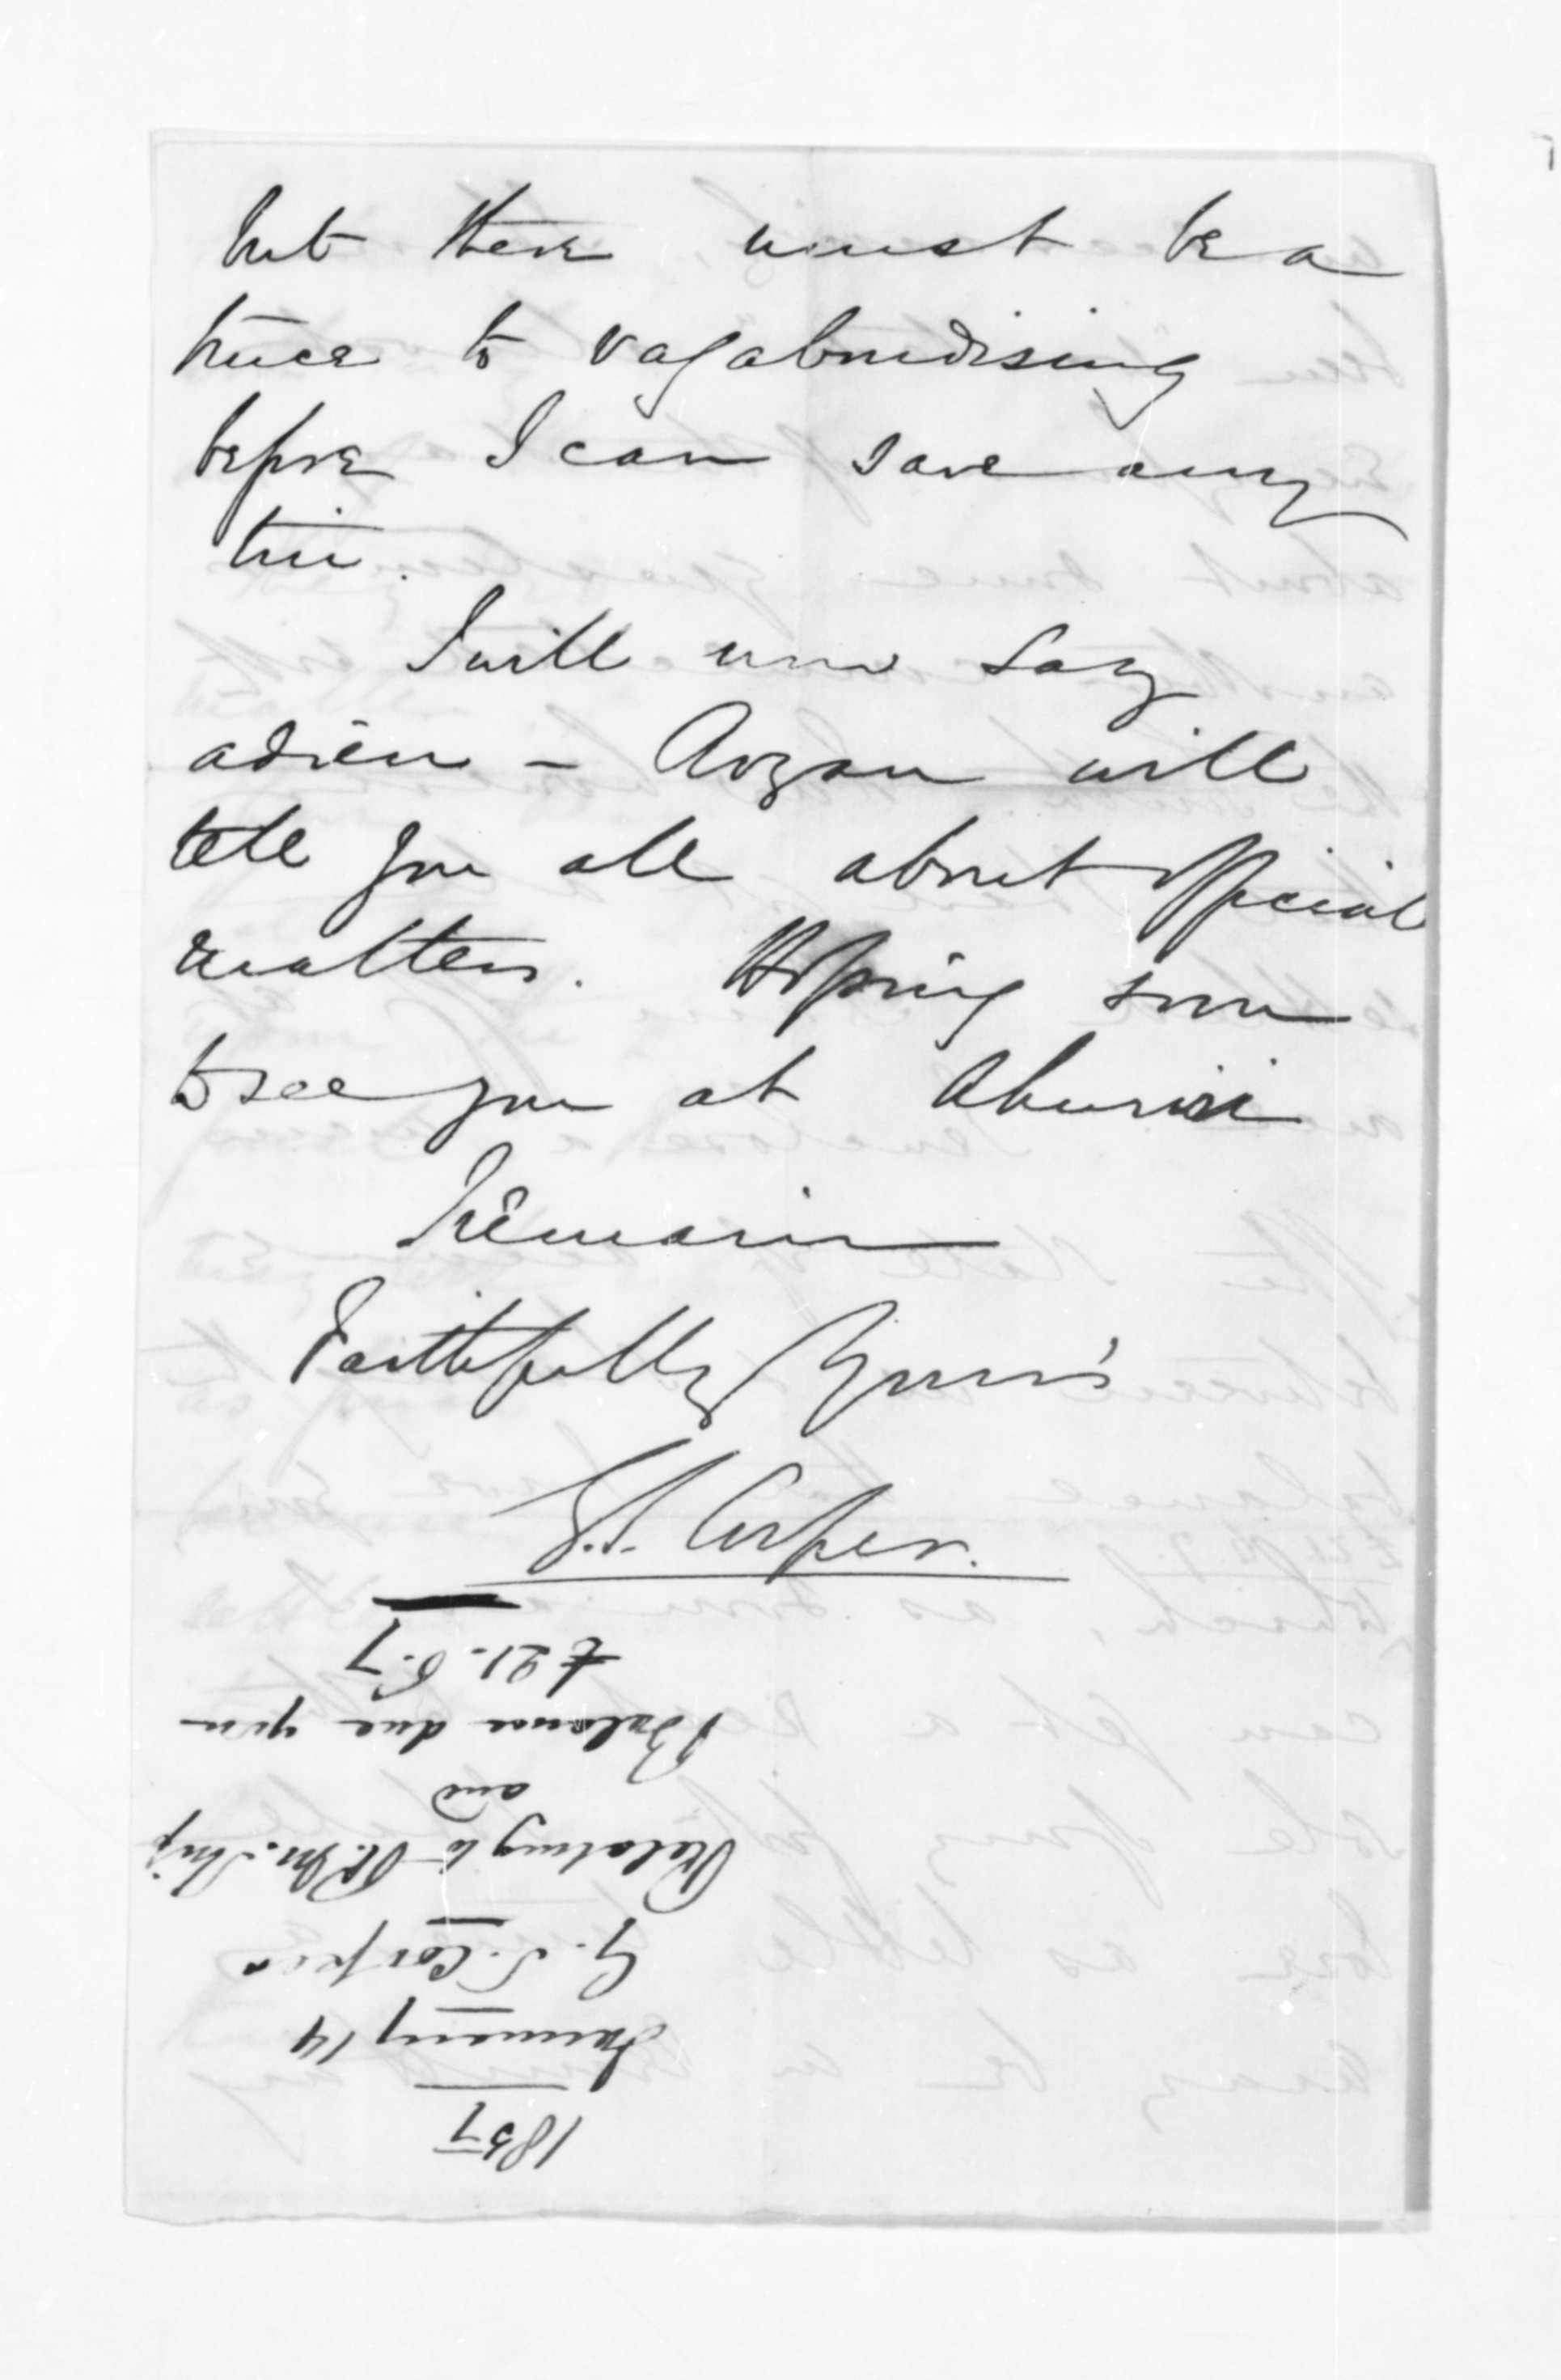 but there must be a
truce to vagabondising
before I can save any
tin.
I will now say
adieu -  will
tell you all about official
matters. Hoping soon
to see you at Ahuriri
I remain
Faithfully Yours
G.S. Cooper.
1857
January 14
G. S. Cooper
Relating to R.M. Ship
and
Balance due you
£21. 6. 7